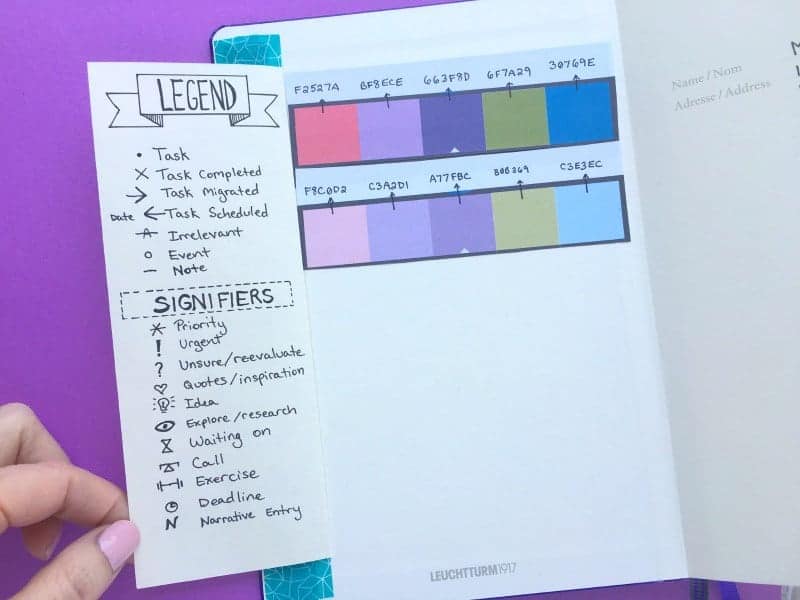 LEGEND
• Task
X Task Completed
→ Task Migrated
Date ← Task Scheduled
A Irrelevant
o Event
— Note
SIGNIFIERS
* Priority
! Urgent
? Unsure/reevaluate
♡ Quotes/inspiration
Idea
Explore/research
Waiting on
Call
Exercise
Deadline
N Narrative Entry
F2527A BF8ECE 663F8D 6F7A29 30769E
F8C0D2 C3A2D1 A77FBC C3E3EC
LEUCHTTURM1917
Name/Nom
Adresse/Address